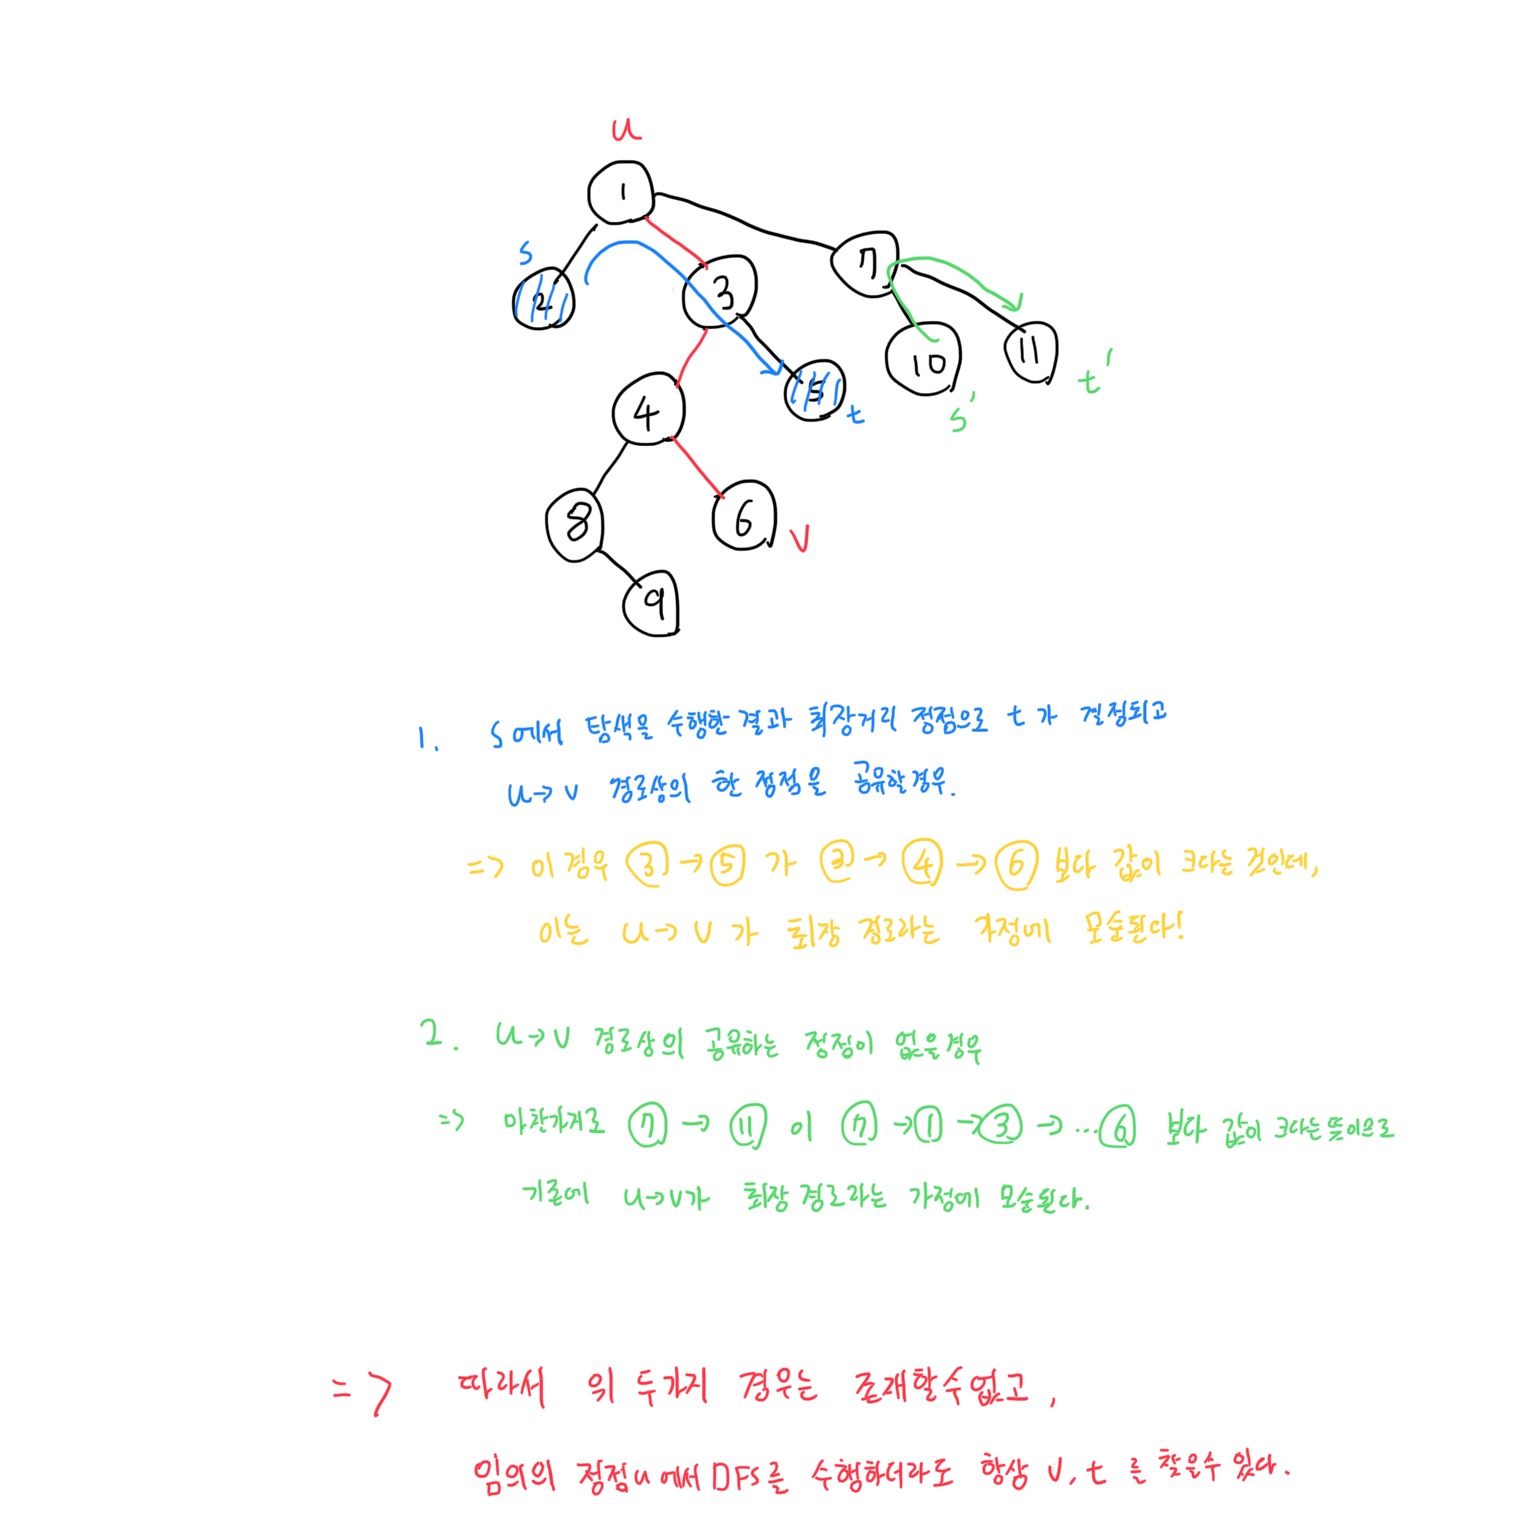 u
1
s
2
3
7
4
5
t
10
11
s'
t'
8
6
v
9
1. s에서 탐색을 수행한 결과 최장거리 정점으로 t가 결정되고
u→v 경로상의 한 정점을 공유할 경우.
=> 이 경우 ③→⑤ 가 ③→④→⑥ 보다 값이 크다는 것인데,
이는 u→v 가 최장 경로라는 가정에 모순된다!
2. u→v 경로상의 공유하는 정점이 없을 경우
=> 마찬가지로 ⑦→⑪ 이 ⑦→①→③→...⑥ 보다 값이 크다는 뜻이므로
기존에 u→v가 최장 경로라는 가정에 모순된다.
=> 따라서 위 두가지 경우는 존재할 수 없고,
임의의 정점 u에서 DFS를 수행하더라도 항상 v, t 를 찾을 수 있다.